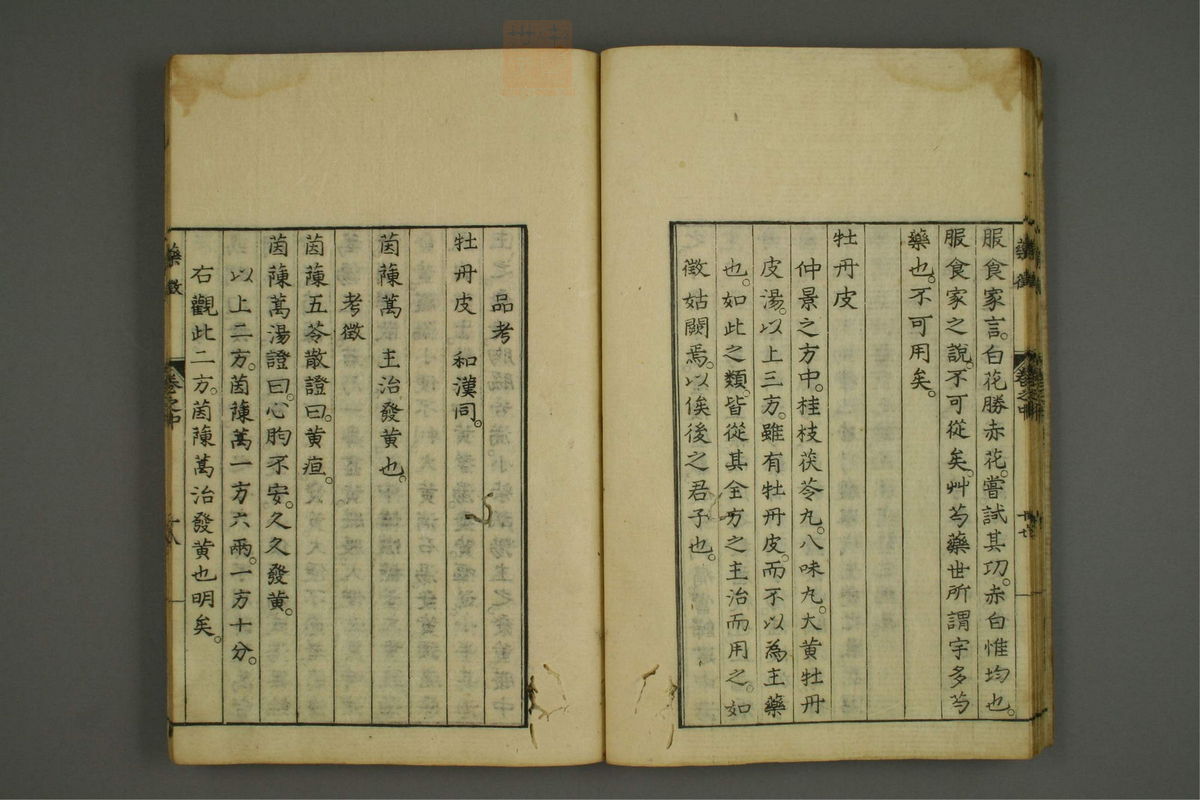 服食家言。白花勝赤花。嘗試其功。赤白惟均也。
服食家之說。不可從矣。艸芍藥世所謂宇多芍
藥也。不可用矣。
牡丹皮
仲景之方中。桂枝茯苓丸。八味丸。大黄牡丹
皮湯。以上三方。雖有牡丹皮。而不以為主藥
也。如此之類。皆從其全方之主治而用之。如
徵姑闕焉。以俟後之君子也。
品考
牡丹皮 和漢同。
茵蔯蒿 主治發黄也。
考徵
茵蔯五苓散證曰。黄疸。
茵蔯蒿湯證曰。心胷不安。久久發黄。
以上二方。茵蔯蒿一方六兩。一方十分。
右觀此二方。茵蔯蒿治發黄也明矣。
藥徵
卷之中
十八